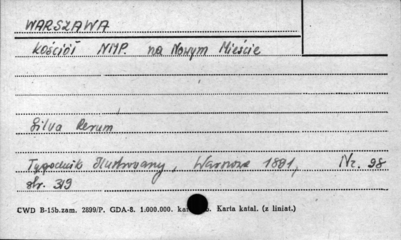 WARSZAWA
Kościół NMP. na Nowym Mieście
Silva Rerum
Tygodnik Illustrowany, Warszawa 1891, Nr. 98
str. 319
CWD B-15b.zam. 2899/P. GDA-8. 1.000.000. Karta katal. (z liniat.)